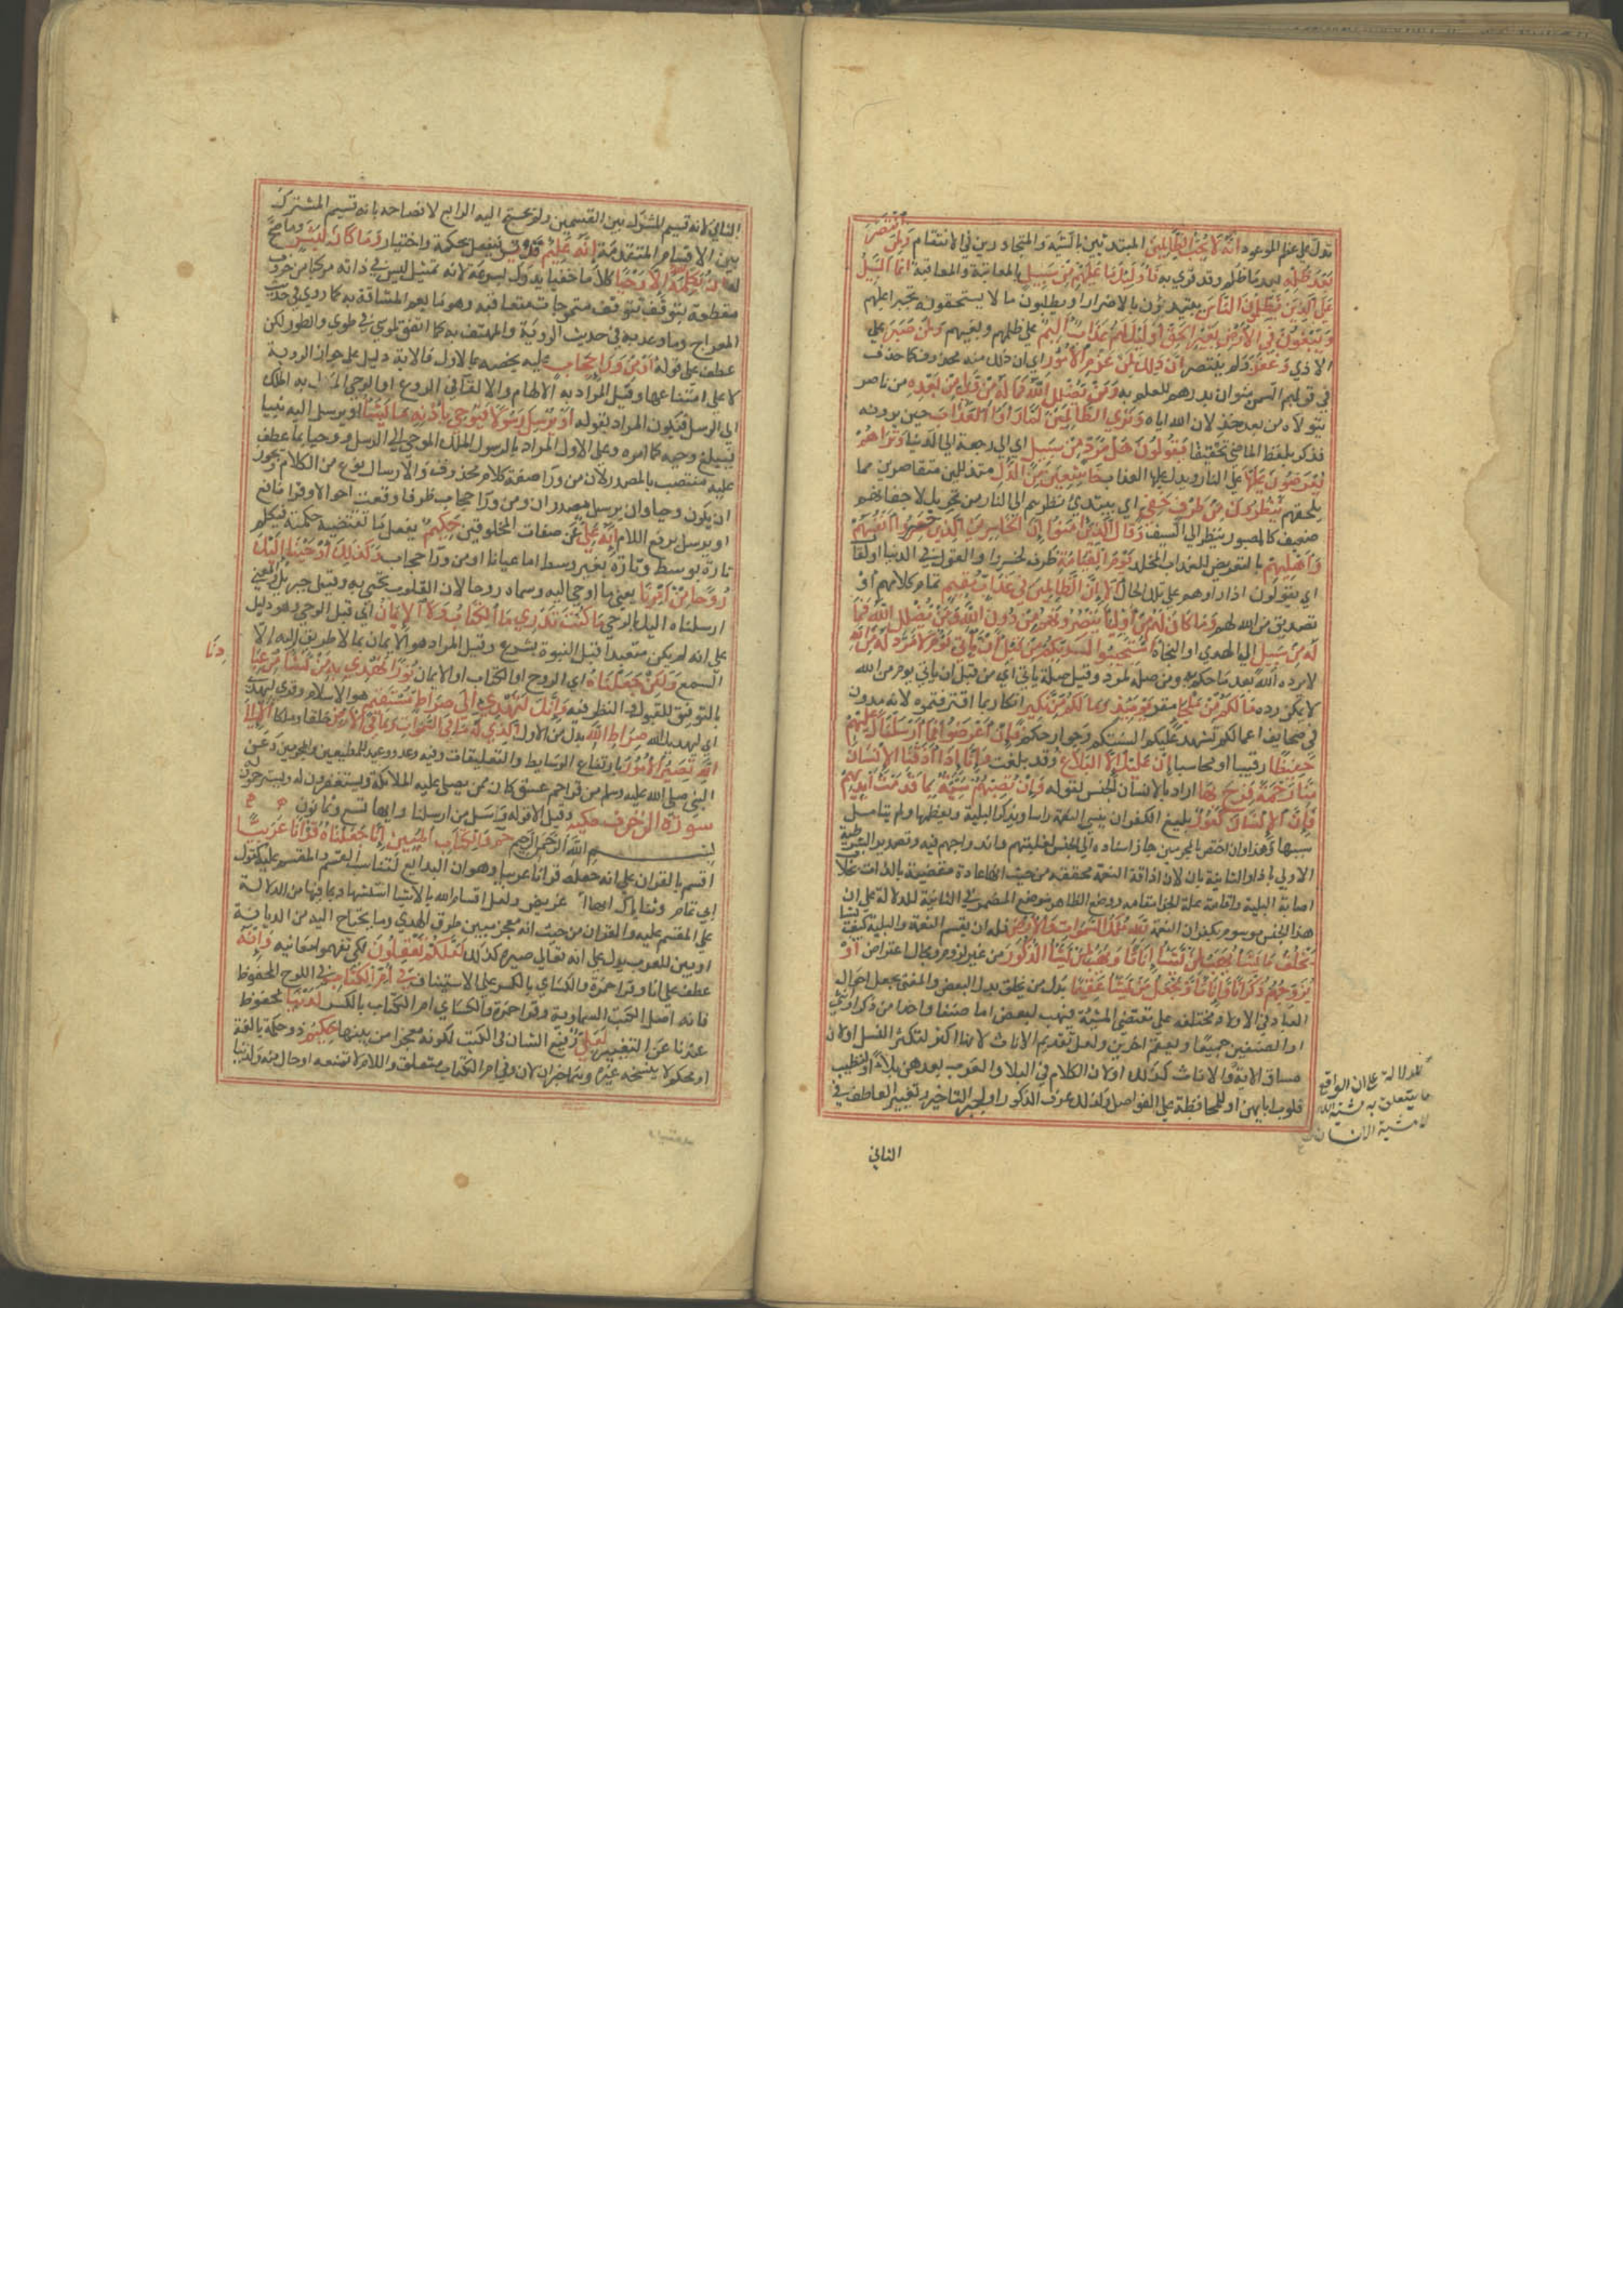 تدل علي عظم الموعود انه لا يحب الظالمين المبتدئين بالسيئة والمتجاوزين في الانتقام ولمن انتصر
بعد ظلمه بعد ما ظلم وقد قري به فاولئك ما عليهم من سبيل بالمعاتبة والمعاقبة انما السبيل
علي الذين يظلمون الناس يبتدؤن بالاضرار او يطلبون ما لا يستحقونه تجبرا عليهم
ويبغون في الارض بغير الحق اولئك لهم عذاب اليم علي ظلمهم وبغيهم ولمن صبر علي
الاذي وغفر ولم ينتصر ان ذلك لمن عزم الامور اي ان ذلك منه فحذف كما حذف
في قولهم السمن منوان بدرهم للعلم به ومن يضلل الله فما له من ولي من بعده من ناصر
يتولاه من بعد خذلان الله اياه وتري الظالمين لما راوا العذاب حين يرونه
فذكر بلفظ الماضي تحقيقا يقولون هل الي مرد من سبيل اي الي رجعة الي الدنيا وتراهم
يعرضون عليها علي النار ويدل عليها العذاب خاشعين من الذل متذللين متقاصرين مما
يلحقهم ينظرون من طرف خفي اي يبتدي نظرهم الي النار من تحريك لاجفانهم
ضعيف كالمصبور ينظر الي السيف وقال الذين امنوا ان الخاسرين الذين خسروا انفسهم
واهليهم بالتعريض للعذاب المخلد يوم القيامة ظرف لخسروا والقول في الدنيا او لقال
اي يقولون اذا راوهم علي تلك الحال الا ان الظالمين في عذاب مقيم تمام كلامهم او
تصديق من الله لهم وما كان لهم من اولياء ينصرونهم من دون الله ومن يضلل الله فما
له من سبيل الي الهدي او النجاة استجيبوا لربكم من قبل ان ياتي يوم لا مرد له من الله
لا يرده الله بعد ما حكم به ومن صلة لمرد وقيل صلة ياتي اي من قبل ان ياتي يوم من الله
لا يمكن رده ما لكم من ملجا مفر يومئذ وما لكم من نكير انكار بما اقترفتموه لانه مدون
في صحايف اعمالكم تشهد عليكم السنتكم وجوارحكم فان اعرضوا فما ارسلناك عليهم
حفيظا رقيبا او محاسبا ان عليك الا البلاغ وقد بلغت وانا اذا اذقنا الانسان
منا رحمة فرح بها اراد بالانسان الجنس لقوله وان تصبهم سيئة بما قدمت ايديهم
فان الانسان كفور بليغ الكفران ينسي النعمة راسا ويذكر البلية ويعظمها ولم يتامل
سببها وهذا وان اختص بالمجرمين جاز اسناده الي الجنس لغلبتهم واندراجهم فيه وتصدير الشرطية
الاولي باذا والثانية بان لان اذاقة النعمة محققة من حيث انها عادة مقتضية بالذات بخلاف
اصابة البلية واقامة علة الجزا مقامه ووضع الظاهر موضع المضمر في الثانية للدلالة علي ان
هذا الجنس موسوم بكفران النعمة لله ملك السموات والارض فله ان يقسم النعمة والبلية كيف يشا
يخلق ما يشا يهب لمن يشا اناثا ويهب لمن يشا الذكور من غير لزوم ومجال اعتراض او
يزوجهم ذكرانا واناثا ويجعل من يشا عقيما بدل من يخلق بدل البعض والمعني يجعل احوال
العباد في الاولاد مختلفة علي مقتضي المشية فيهب لبعض اما صنفا واحدا من ذكر او انثي
او الصنفين جميعا ويعقم اخرين ولعل تقديم الاناث لانها اكثر لتكثير النسل او لان
مساق الاية والاناث كذلك او لان الكلام في البلا والعرب تعدهن بلاء او لتطييب
قلوب ابايهن او للمحافظة علي الفواصل ولذلك عرف الذكور او لجبر التاخير وتغيير العاطف في
للدلالة علي ان الواقع
ما يتعلق به مشية الله
لا مشية الانسان
الثاني
الثاني لانه قسيم المشترك بين القسمين ولم يحتج اليه الرابع لافصاحه بانه قسيم المشترك
بين الاقسام المتقدمة انه عليم قدير فيفعل بحكمة واختيار وما كان لبشر وما صح
له ان يكلمه الله الا وحيا كلاما خفيا يدرك بسرعة لانه تمثيل ليس في ذاته مركبا من حروف
مقطعة يتوقف علي تموجات متعاقبة وهو ما يعم المشافه به كما روي في حديث
المعراج وما وعد به في حديث الروية والمهتف به كما اتفق لموسي في طوي والطور لكن
عطف علي قوله او من وراء حجاب عليه يخصه بالاول فالاية دليل علي جواز الروية
لا علي امتناعها وقيل المراد به الالهام والالقا في الروع او الوحي المنزل به الملك
الي الرسل فيكون المراد بقوله او يرسل رسولا فيوحي باذنه ما يشاء او يرسل اليه نبيا
فيبلغ وحيه كما امره وعلي الاول المراد بالرسول الملك الموحي الي الرسل ووحيا بما عطف
عليه منتصب بالمصدر لان من وراء صفة كلام محذوف والارسال نوع من الكلام ويجوز
ان يكون وحيا وان يرسل مصدران ومن ورا حجاب ظرفا وقعت احوالا وقرا نافع
او يرسل برفع اللام انه علي عن صفات المخلوقين حكيم يفعل ما تقتضيه حكمته فيكلم
تارة بوسط وتارة بغير وسط اما عيانا او من ورا حجاب وكذلك اوحينا اليك
روحا من امرنا يعني ما اوحي اليه وسماه روحا لان القلوب تحيي به وقيل جبريل والمعني
ارسلناه اليك بالوحي ما كنت تدري ما الكتاب ولا الايمان اي قبل الوحي وهو دليل
علي انه لم يكن متعبدا قبل النبوة بشرع وقيل المراد هو الايمان بما لا طريق اليه الا
السمع ولكن جعلناه اي الروح او الكتاب او الايمان نورا نهدي به من نشاء من عبا
دنا
بالتوفيق للقبول والنظر فيه وانك لتهدي الي صراط مستقيم هو الاسلام وقري لتهدي
اي ليهديك الله صراط الله بدل من الاول الذي له ما في السموات وما في الارض خلقا وملكا الا الي
الله تصير الامور بارتفاع الوسايط والتعليقات وفيه وعد ووعيد للمطيعين والمجرمين وعن
النبي صلي الله عليه وسلم من قرا حم عسق كان ممن يصلي عليه الملائكة ويستغفرون له ويسترحمون له
سورة الزخرف مكية وقيل الا قوله واسل من ارسلنا وايها تسع وثمانون
بسم الله الرحمن الرحيم حم والكتاب المبين انا جعلناه قرانا عربيا
اقسم بالقران علي انه جعله قرانا عربيا وهو من البدايع لتناسب القسم والمقسم عليه كقول
ابي تمام وثناياك انها اغريض ولعل اقسام الله بالاشيا استشهاد بما فيها من الدلالة
علي المقسم عليه والقران من حيث انه معجز مبين طرق الهدي وما يحتاج اليه من الديانة
او بين للعرب يدل علي انه تعالي صيره كذلك لعلكم تعقلون لكي تفهموا معانيه وانه
عطف علي انا وقرا حمزة والكساي بالكسر علي الاستيناف في ام الكتاب في اللوح المحفوظ
فانه اصل الكتب السماوية وقرا حمزة والكساي ام الكتاب بالكسر لدينا محفوظ
عندنا عن التغيير لعلي رفيع الشان في الكتب لكونه معجزا من بينها حكيم ذو حكمة بالغة
او محكم لا ينسخه غيره وهما خبران لان وفي ام الكتاب متعلق بلعلي واللام لا تمنعه او حال منه ولدينا